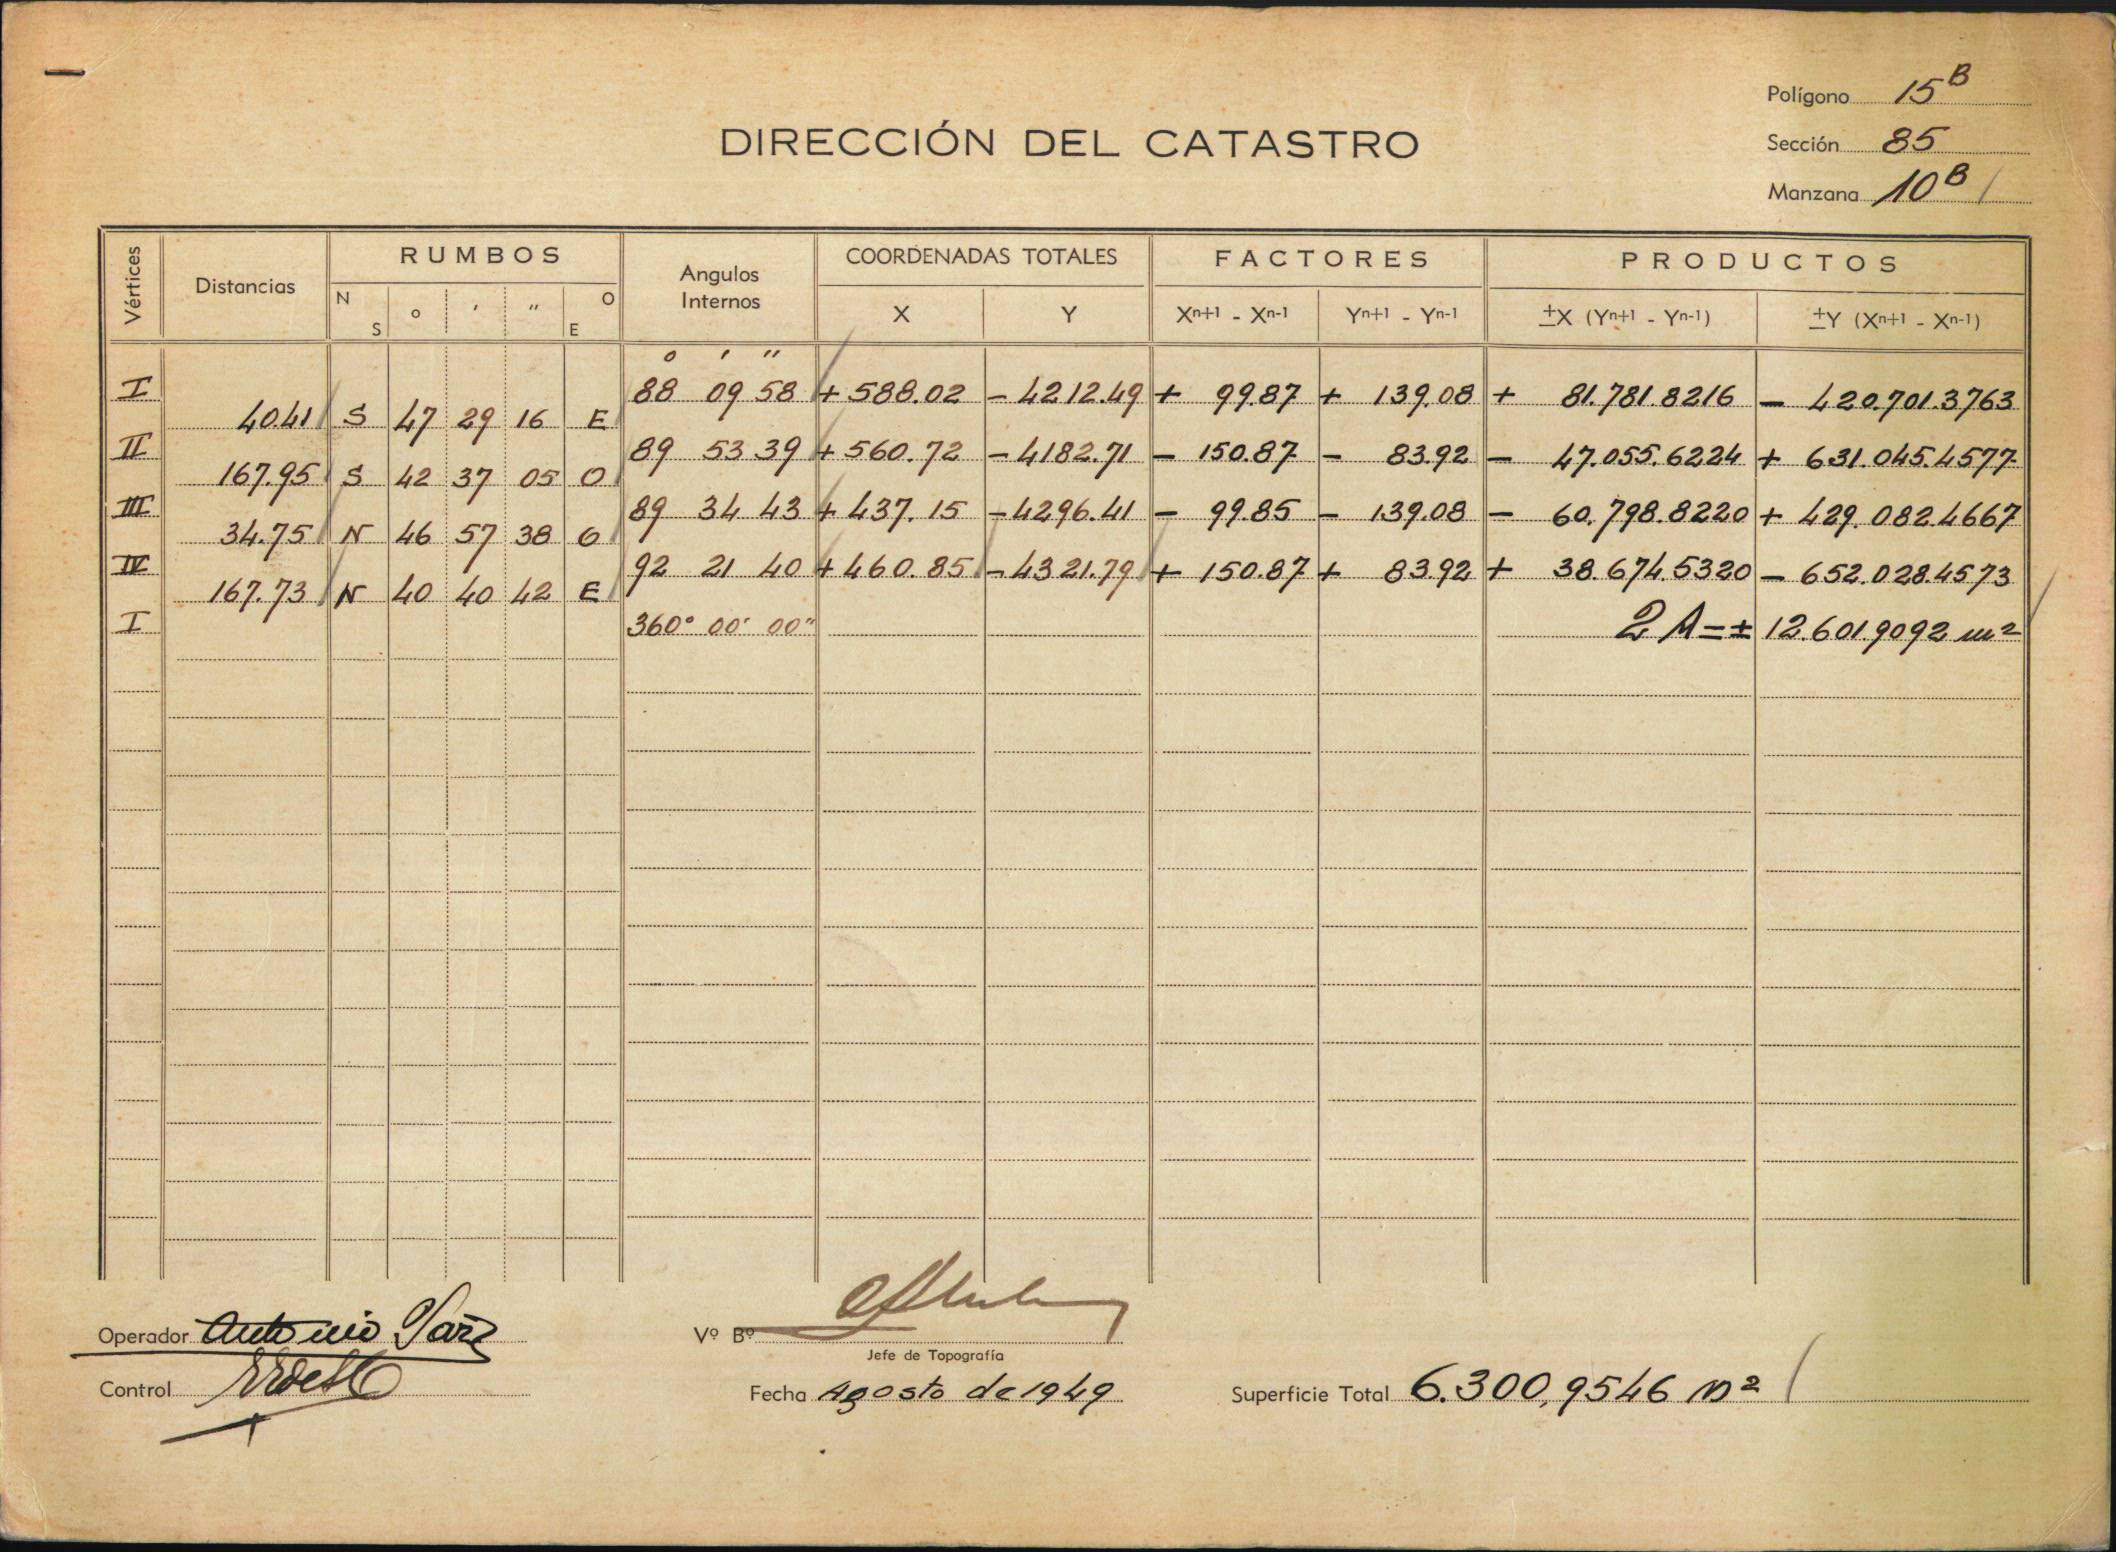 Polígono 15B
DIRECCIÓN DEL CATASTRO
Sección 85
Manzana 10B
Vértices Distancias RUMBOS Angulos Internos COORDENADAS TOTALES FACTORES PRODUCTOS
N S o ' " O E X Y Xn+1 - Xn-1 Yn+1 - Yn-1 ±X (Yn+1 - Yn-1) ±Y (Xn+1 - Xn-1)
o ' "
I 88 09 58 + 588.02 - 4212.49 + 99.87 + 139.08 + 81.781.8216 - 420.701.3763
40.41 S 47 29 16 E
II 89 53 39 + 560.72 - 4182.71 - 150.87 - 83.92 - 47.055.6224 + 631.045.4577
167.95 S 42 37 05 O
III 89 34 43 + 437.15 - 4296.41 - 99.85 - 139.08 - 60.798.8220 + 429.082.4667
34.75 N 46 57 38 O
IV 92 21 40 + 460.85 - 4321.79 + 150.87 + 83.92 + 38.674.5320 - 652.028.4573
167.73 N 40 40 42 E
I 360° 00' 00" 2 A = ± 12.601.9092 m²
Operador Antonio
Vº Bº
Jefe de Topografía
Control
Fecha Agosto de 1949
Superficie Total 6.300,9546 m²